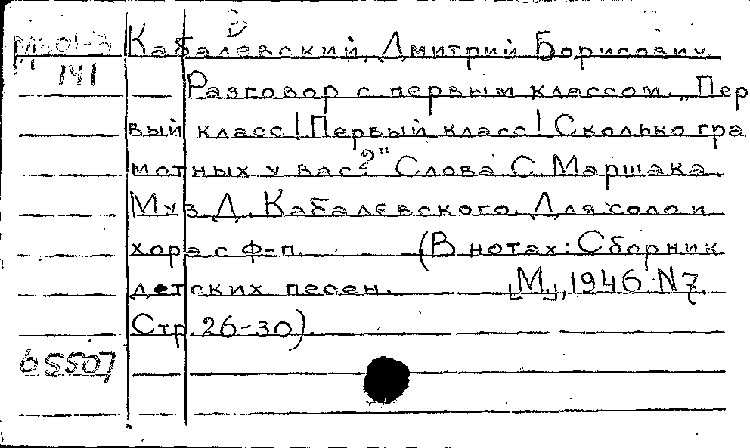 Кабалевский, Дмитрий Борисович.
141
Разговор с первым классом. „Пер
вый класс! Первый класс! Сколько гра
мотных у вас?" Слова С. Маршака.
Муз. Д. Кабалевского. Для соло и
хора с ф-п. (В нотах: Сборник
детских песен. [М.], 1946. N7.
Стр. 26-30).
65507